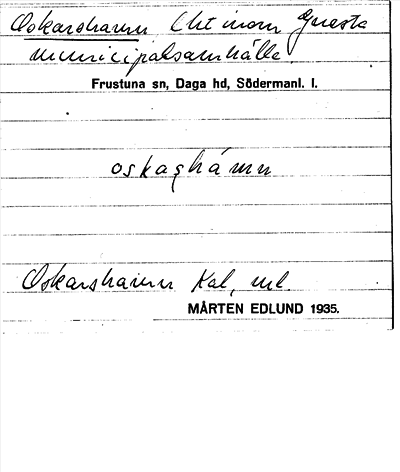 Oskarshamn Lht inom Gnesta
municipalsamhälle.
Frustuna sn, Daga hd, Södermanl. l.
oskaṣhámn
Oskarshamn Kal, ml.
MÅRTEN EDLUND 1935.